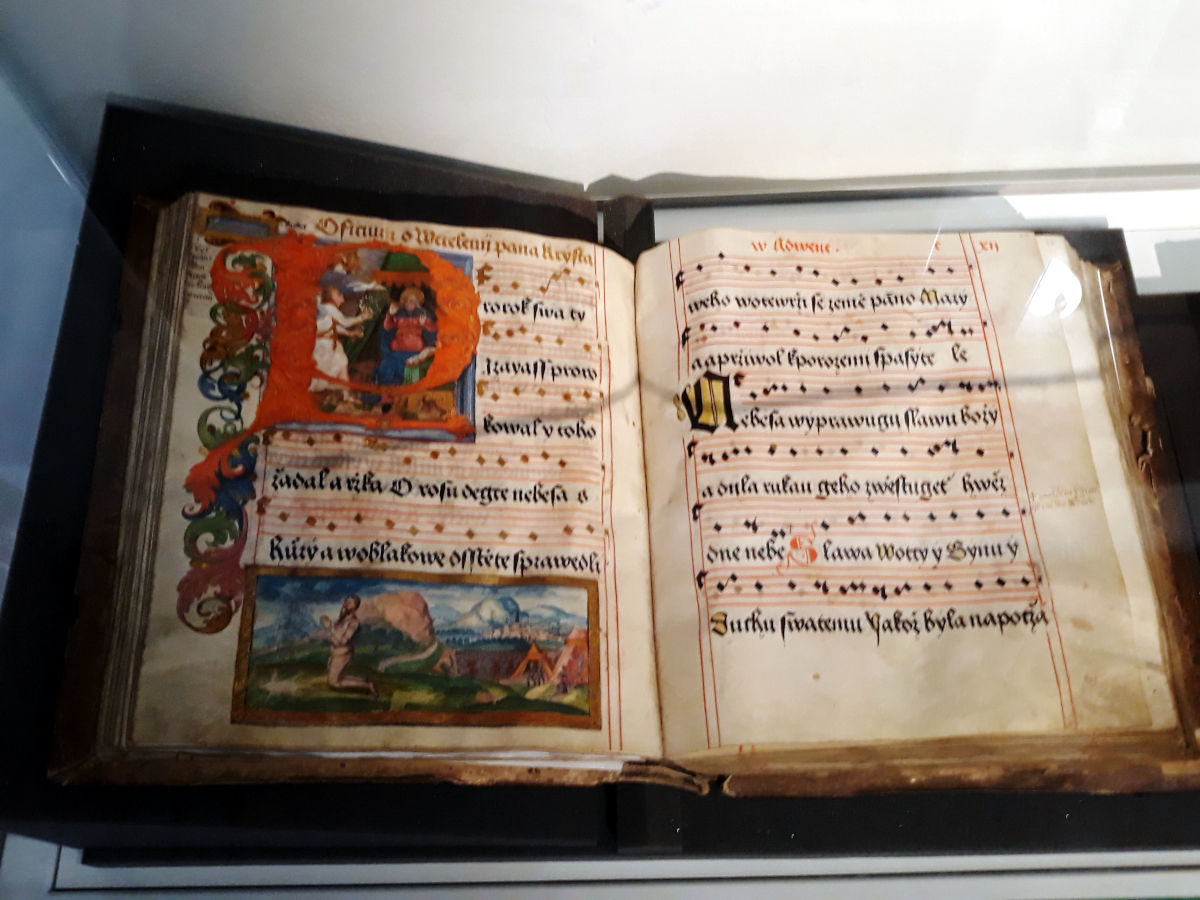 Oficium o Wtelenij pana Krysta
P
rorok swaty
Izayass prow
kowal y toho
žadal a rzka O rosu degte nebesa s
hůrý a woblakowe dsstěte sprawedli
w Adwent. xij
weho wotewrži se země páno Marý
a apriwol kporozenij spasyte le
N ebesa wyprawugij slawu božý
a dijla rukau geho zwěstuget hwěz
dne nebe S lawa Wotcy y Synu y
Duchu swatemu Yakož byla napotža